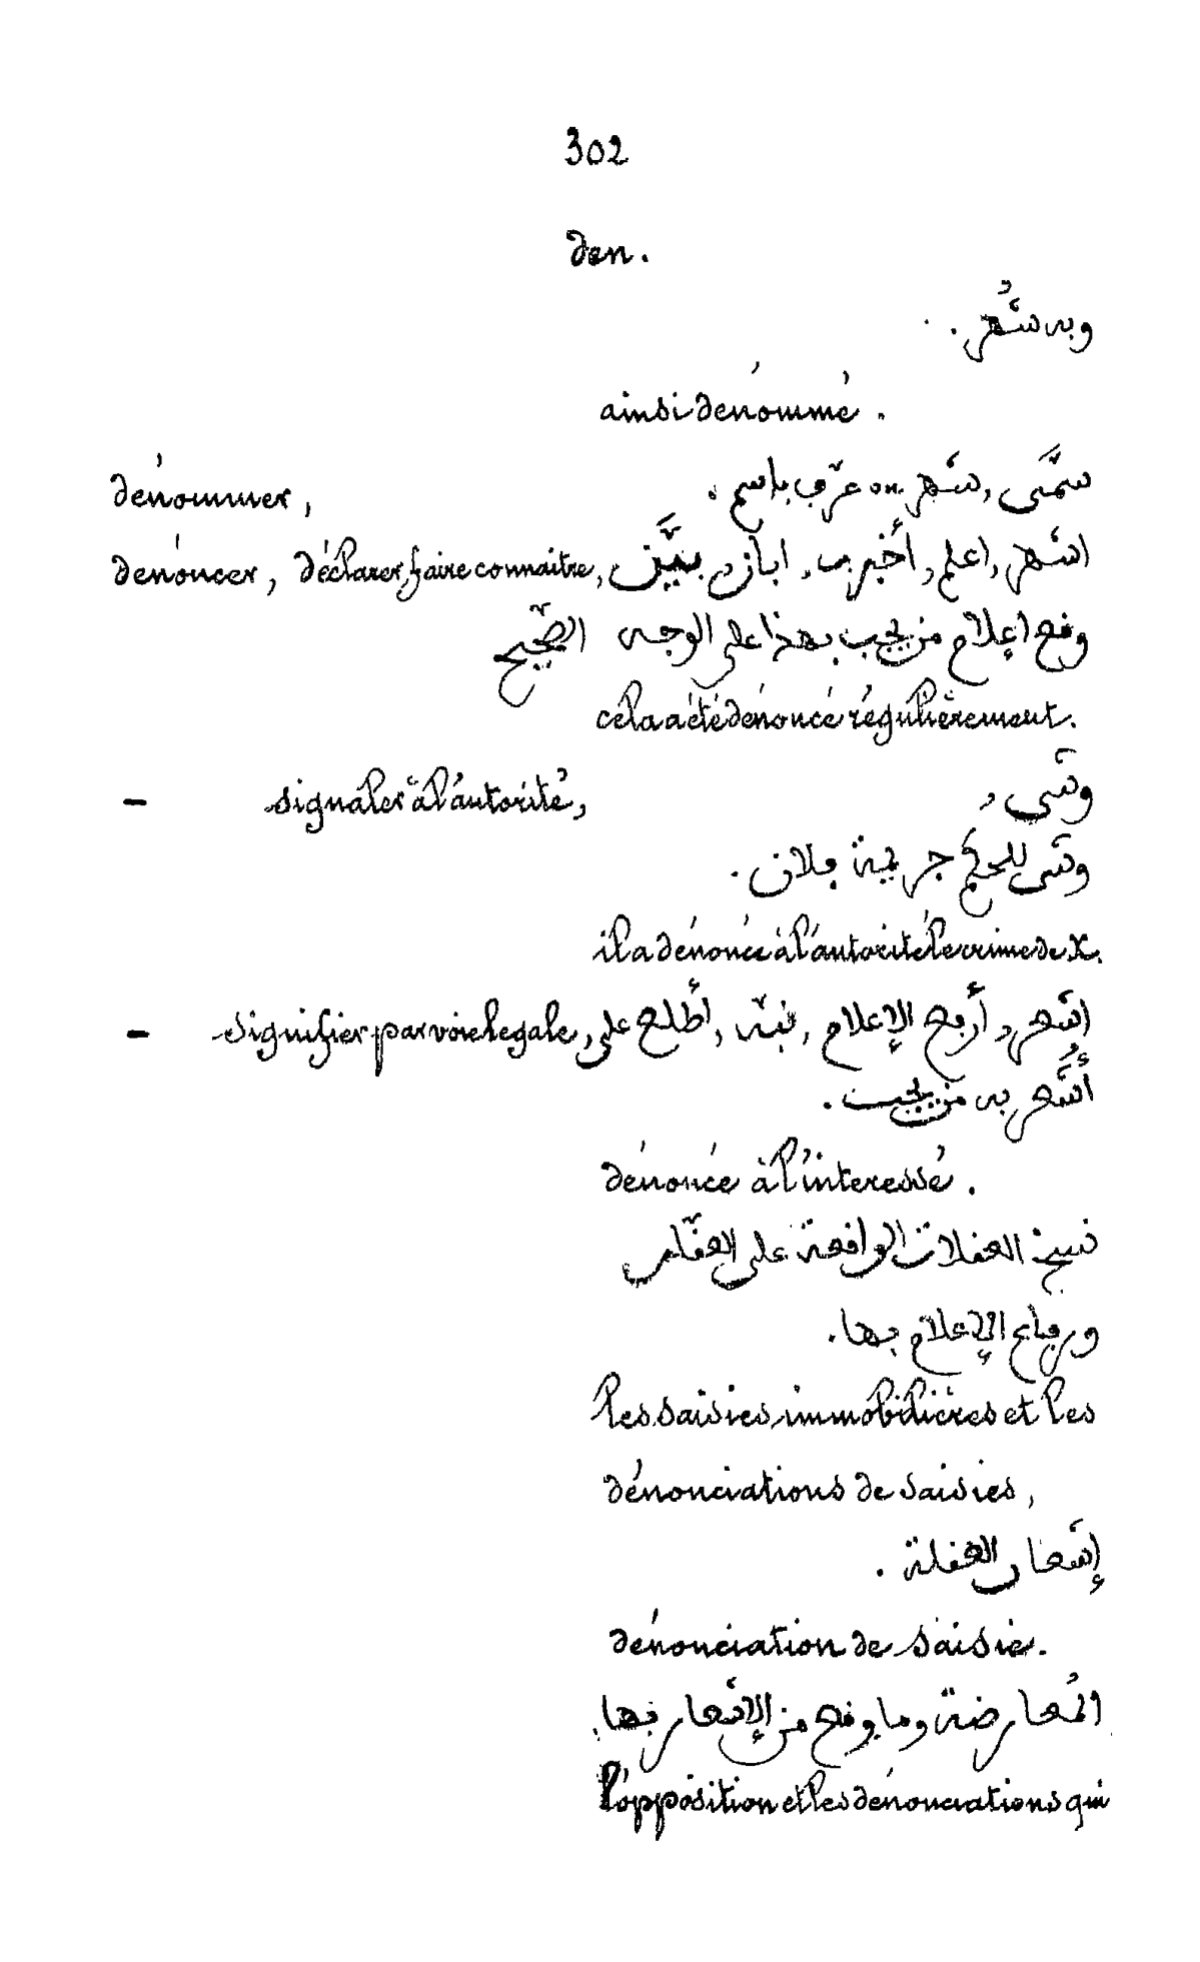 302
den.
وبه شُهر.
ainsi dénommé.
dénommer, سمَّى, شهر ou عرّف باسم.
dénoncer, déclarer, faire connaitre, اشهر, اعلم, أخبر ب, ابان, بيَّن
وفع اعلام من يجب بهذا على الوجه الصّحيح
cela a été dénoncé régulièrement.
— signaler à l'autorité, وشى,
وشى للحكم جريمة فلان.
il a dénoncé à l'autorité le crime de X.
— signifier par voie legale, اشعر, أرفع الإعلام, نبّه, أطلع على
أُشعر به من يجب.
dénoncé à l'interessé.
نسخ العفلات الوافعة على العفّار
ورفاع الإعلام بها.
les saisies immobilières et les
dénonciations de saisies,
إشعار العفلة.
dénonciation de saisie.
المُعارضة وما وفع من الإشعار بها.
l'opposition et les dénonciations qui